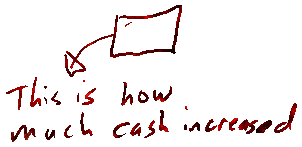 This is how
much cash increased